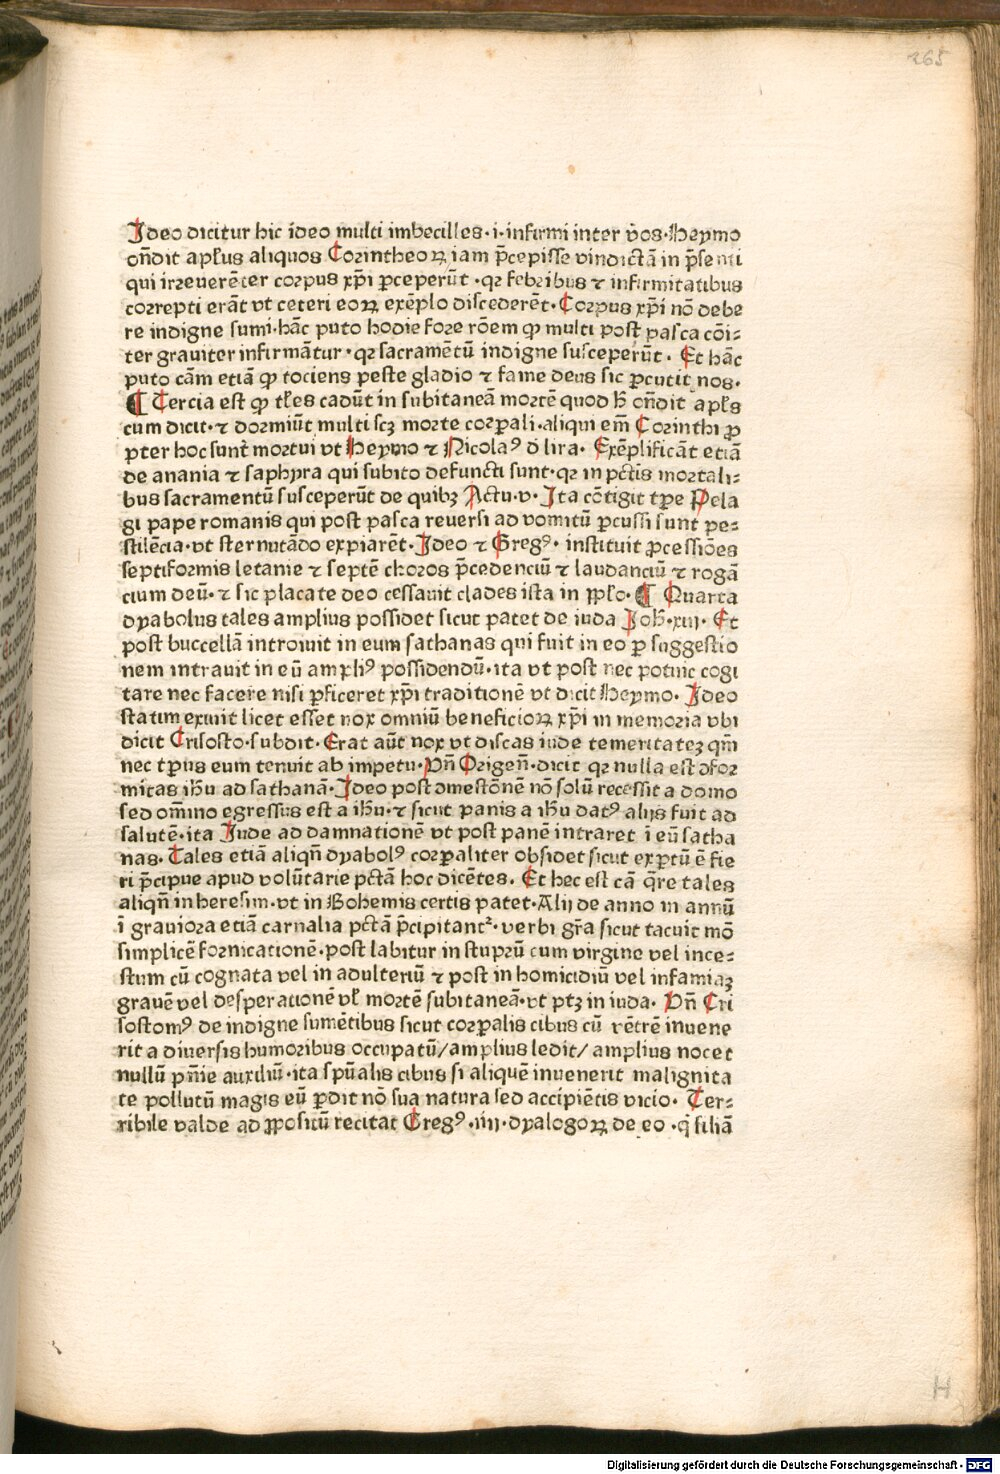 265
Ideo dicitur hic ideo multi imbecilles·i·infirmi inter vos·Heymo
ōn̄dit ap̄l'us aliquos Corintheoꝝ iam p̄cepisse vindictā in p̄senti
qui irreuerēter corpus xp̄i ꝑceperūt·qꝛ febribus ⁊ infirmitatibus
correpti erāt vt ceteri eoꝝ exēplo discederēt·Corpus xp̄i nō debe
re indigne sumi·hāc puto hodie fore rōem ꝙ multi post pasca cōi-
ter grauiter infirmātur·qꝛ sacramētū indigne susceperūt· Et hāc
puto cām etiā ꝙ tociens peste gladio ⁊ fame deus sic ꝑcutit nos·
¶ Tercia est ꝙ tl'es cadūt in subitaneā mortē quod h̄ on̄dit apl's
cum dicit·⁊ dormiūt multi scꝫ morte corꝑali·aliqui em̄ Corinthi ꝓ
pter hoc sunt mortui vt Heymo ⁊ Nicolaꝰ d' lira· Exēplificāt etiā
de anania ⁊ saphyra qui subito defuncti sunt·qꝛ in pctīs mortali-
bus sacramentū susceperūt de quibꝫ Actu·v·Ita cōtigit tꝑe Pela
gi pape romanis qui post pasca reuersi ad vomitū ꝑcussi sunt pe-
stilēcia·vt sternutādo expiarēt·Ideo ⁊ Gregꝰ· instituit ꝓcessiōes
septiformis letanie ⁊ septē choros p̄cedenciū ⁊ laudanciū ⁊ rogā
cium deū·⁊ sic placate deo cessauit clades ista in ꝓpl'o·¶ Quarta
dyabolus tales amplius possidet sicut patet de iuda Joh̄·xiij· Et
post buccellā introiuit in eum sathanas qui fuit in eo ꝑ suggestio
nem intrauit in eū ampliꝰ possidendū·ita vt post nec potuit cogi
tare nec facere nisi ꝑficeret xp̄i traditionē vt dicit Heymo· Ideo
statim exiuit licet esset nox omniū beneficioꝝ xp̄i in memoria vbi
dicit Crisosto·subdit·Erat aūt nox vt discas iude temeritatēꝫ qm̄
nec tp̄us eum tenuit ab impetu·Vn̄ Origen̄·dicit qꝛ nulla est ꝯfor
mitas ih̄u ad sathanā·Ideo post ꝯmestōnē nō solū recessit a domo
sed om̄ino egressus est a ih̄u·⁊ sicut panis a ih̄u datꝰ alijs fuit ad
salutē·ita Jude ad damnationē vt post panē intraret ī eū satha
nas·Tales etiā aliqn̄ dyabolꝰ corꝑaliter obsidet sicut exꝑtū ē fie
ri p̄cipue apud volūtarie pctā hoc dicētes· Et hec est cā q̄re tales
aliqn̄ in heresim·vt in Bohemis certis patet·Alij de anno in annū
ī grauiora etiā carnalia pctā p̄cipitantᷣ·verbi gr̄a sicut tacuit mō
simplicē fornicationē·post labitur in stuprū cum virgine vel ince-
stum cū cognata vel in adulteriū ⁊ post in homicidiū vel infamiaꝫ
grauē vel desperationē vl' mortē subitaneā·vt ptꝫ in iuda· Vn̄ Cri
sostomꝰ de indigne sumētibus sicut corꝑalis cibus cū vētrē inuene
rit a diuersis humoribus occupatū/amplius ledit/amplius nocet
nullū p̄n̄ie auxiliū·ita spūalis cibus si aliquē inuenerit malignita
te pollutū magis eū ꝑdit nō sua natura sed accipiētis vicio· Ter-
ribile valde ad ꝓpositū recitat Gregꝰ·iiij·dyalogoꝝ de eo·q̇ filiā
H
Digitalisierung gefördert durch die Deutsche Forschungsgemeinschaft - DFG